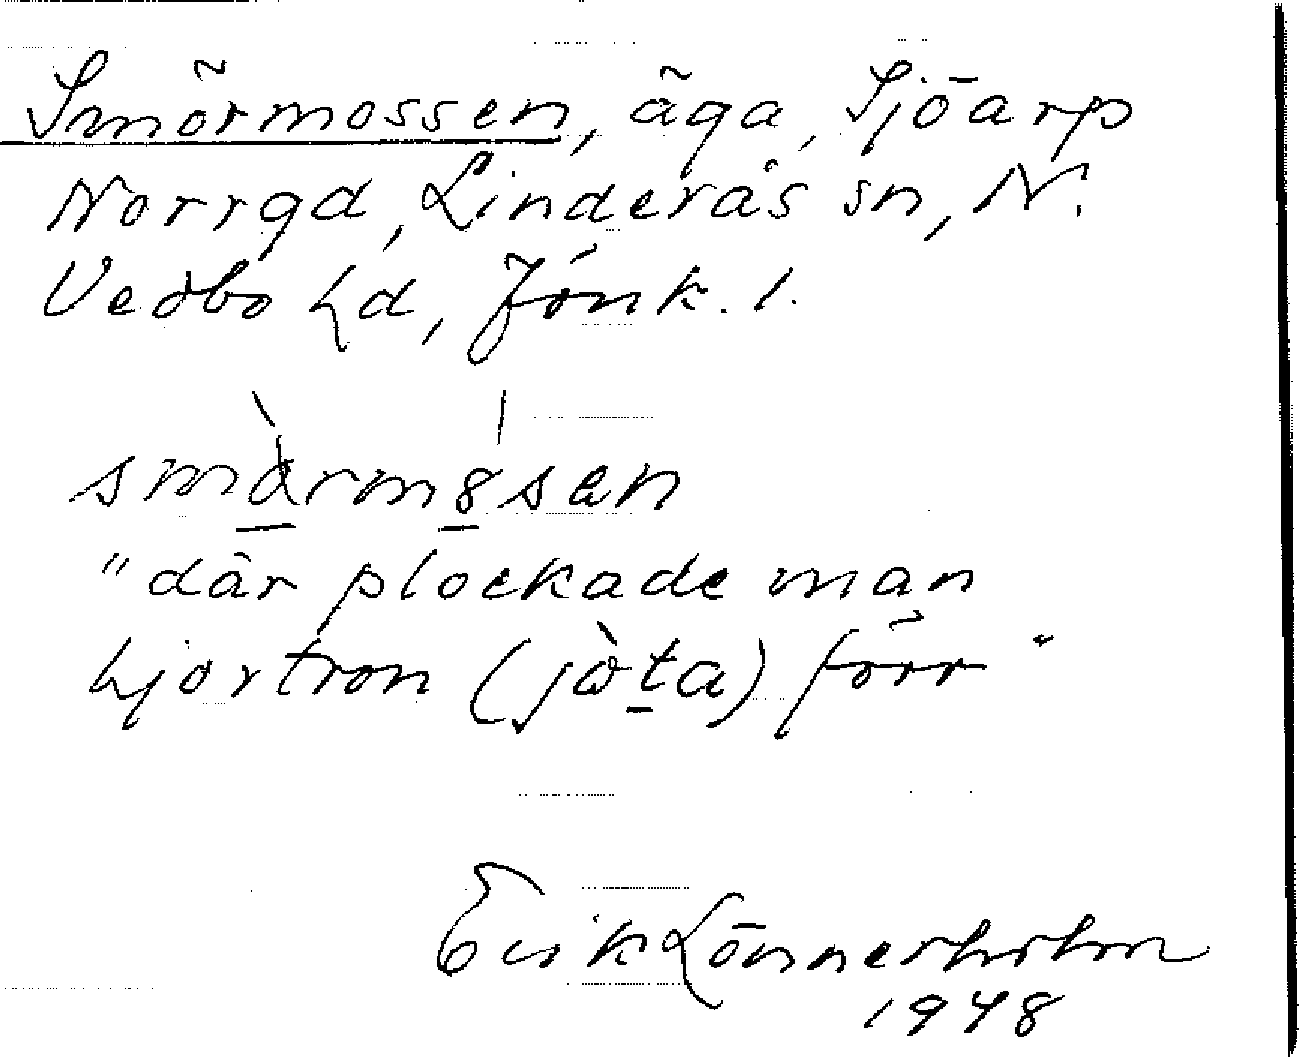 Smörmossen, äga, Sjöarp
Norrgd, Linderås sn, N.
Vedbo hd, Jönk. l.
smàrm8sen
"där plockade man
hjortron (jòta) förr"
Erik Lönnerholm
1948